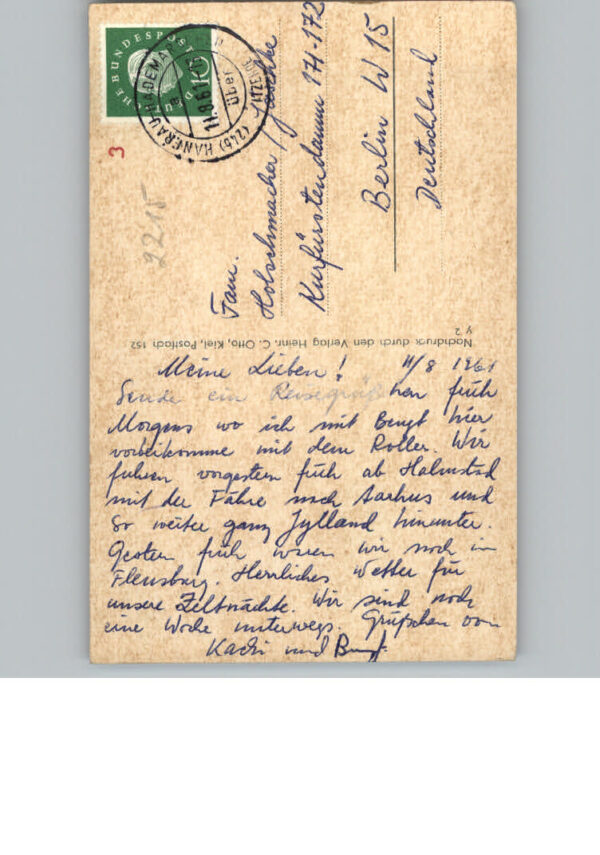 DEUTSCHE BUNDESPOST
10
(24b) HANERAU-HADEMA
über
ITZEHOE
11.8.61
3
2215
Fam.
Holschmacher / Jeschke
Kurfürstendamm 171-172
Berlin W 15
Deutschland
Nachdruck durch den Verlag Heinr. C. Otto, Kiel, Postfach 152
y 2
Meine Lieben! 11/8 1961
Sende ein Reisegrüßchen früh
Morgens wo ich mit Bengt hier
vorbeikomme mit dem Roller. Wir
fuhren vorgestern früh ab Halmstad
mit der Fähre nach Aarhus und
so weiter ganz Jylland hinunter.
Gestern früh waren wir noch in
Flensburg. Herrliches Wetter für
unsere Zeltnächte. Wir sind noch
eine Woche unterwegs. Grüßchen von
und Bengt